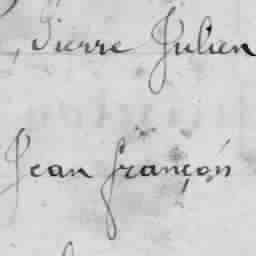 Pierre Julien
Jean françois